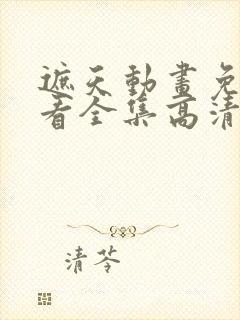 遮天動畫免
看全集高清
清苓